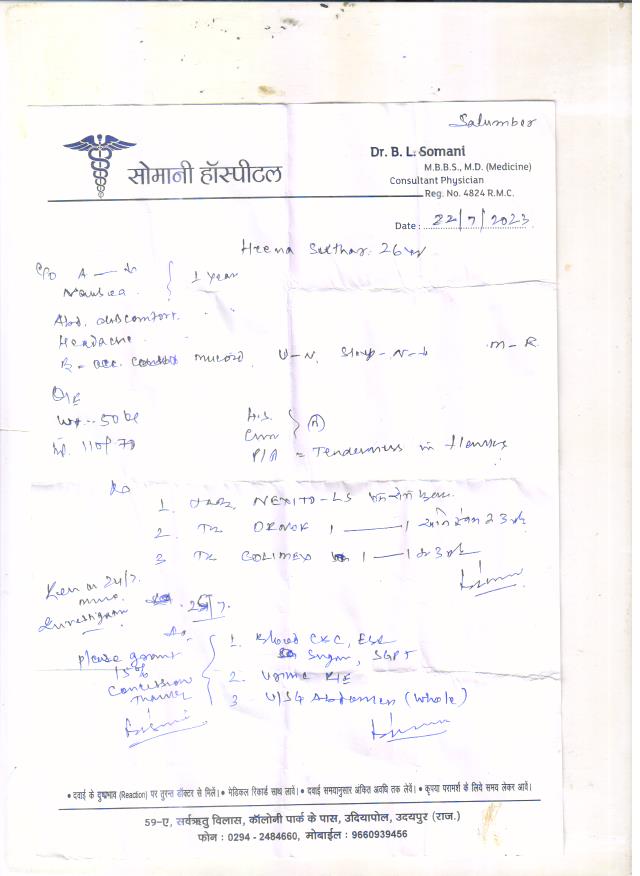 Salumber
सोमानी हॉस्पीटल
Dr. B. L. Somani
M.B.B.S., M.D. (Medicine)
Consultant Physician
Reg. No. 4824 R.M.C.
Date : 22/7/2023
Heena Suthar 26 yr
C/O A — ↓
Nausea } 1 year
Abd. discomfort.
Headache.
B - occ. mucord, U-N, Sleep-N-↓ M-R
O/E
Wt - 50 kg
BP. 110/70
H.S.
P/A = Tenderness in flanks
Rx
1. Tab. NEXITO-LS
2. Tab ORNOF 1 — 1 2 3
3 Tab COLIMEX 1 — 1 3
Rev on 24/7.
Investigation 25/7.
Adv.
please grant
15%
Concession
Thanks
1. Blood CBC, ESR
Sugar, SGPT
2. Urine R/E
3 U/SG Abdomen (Whole)
• दवाई के दुष्प्रभाव (Reaction) पर तुरन्त डॉक्टर से मिलें। • मेडिकल रिकार्ड साथ लावें। • दवाई समयानुसार अंकित अवधि तक लेवें। • कृपया परामर्श के लिये समय लेकर आवें।
59-ए, सर्वऋतु विलास, कॉलोनी पार्क के पास, उदियापोल, उदयपुर (राज.)
फोन : 0294 - 2484660, मोबाईल : 9660939456